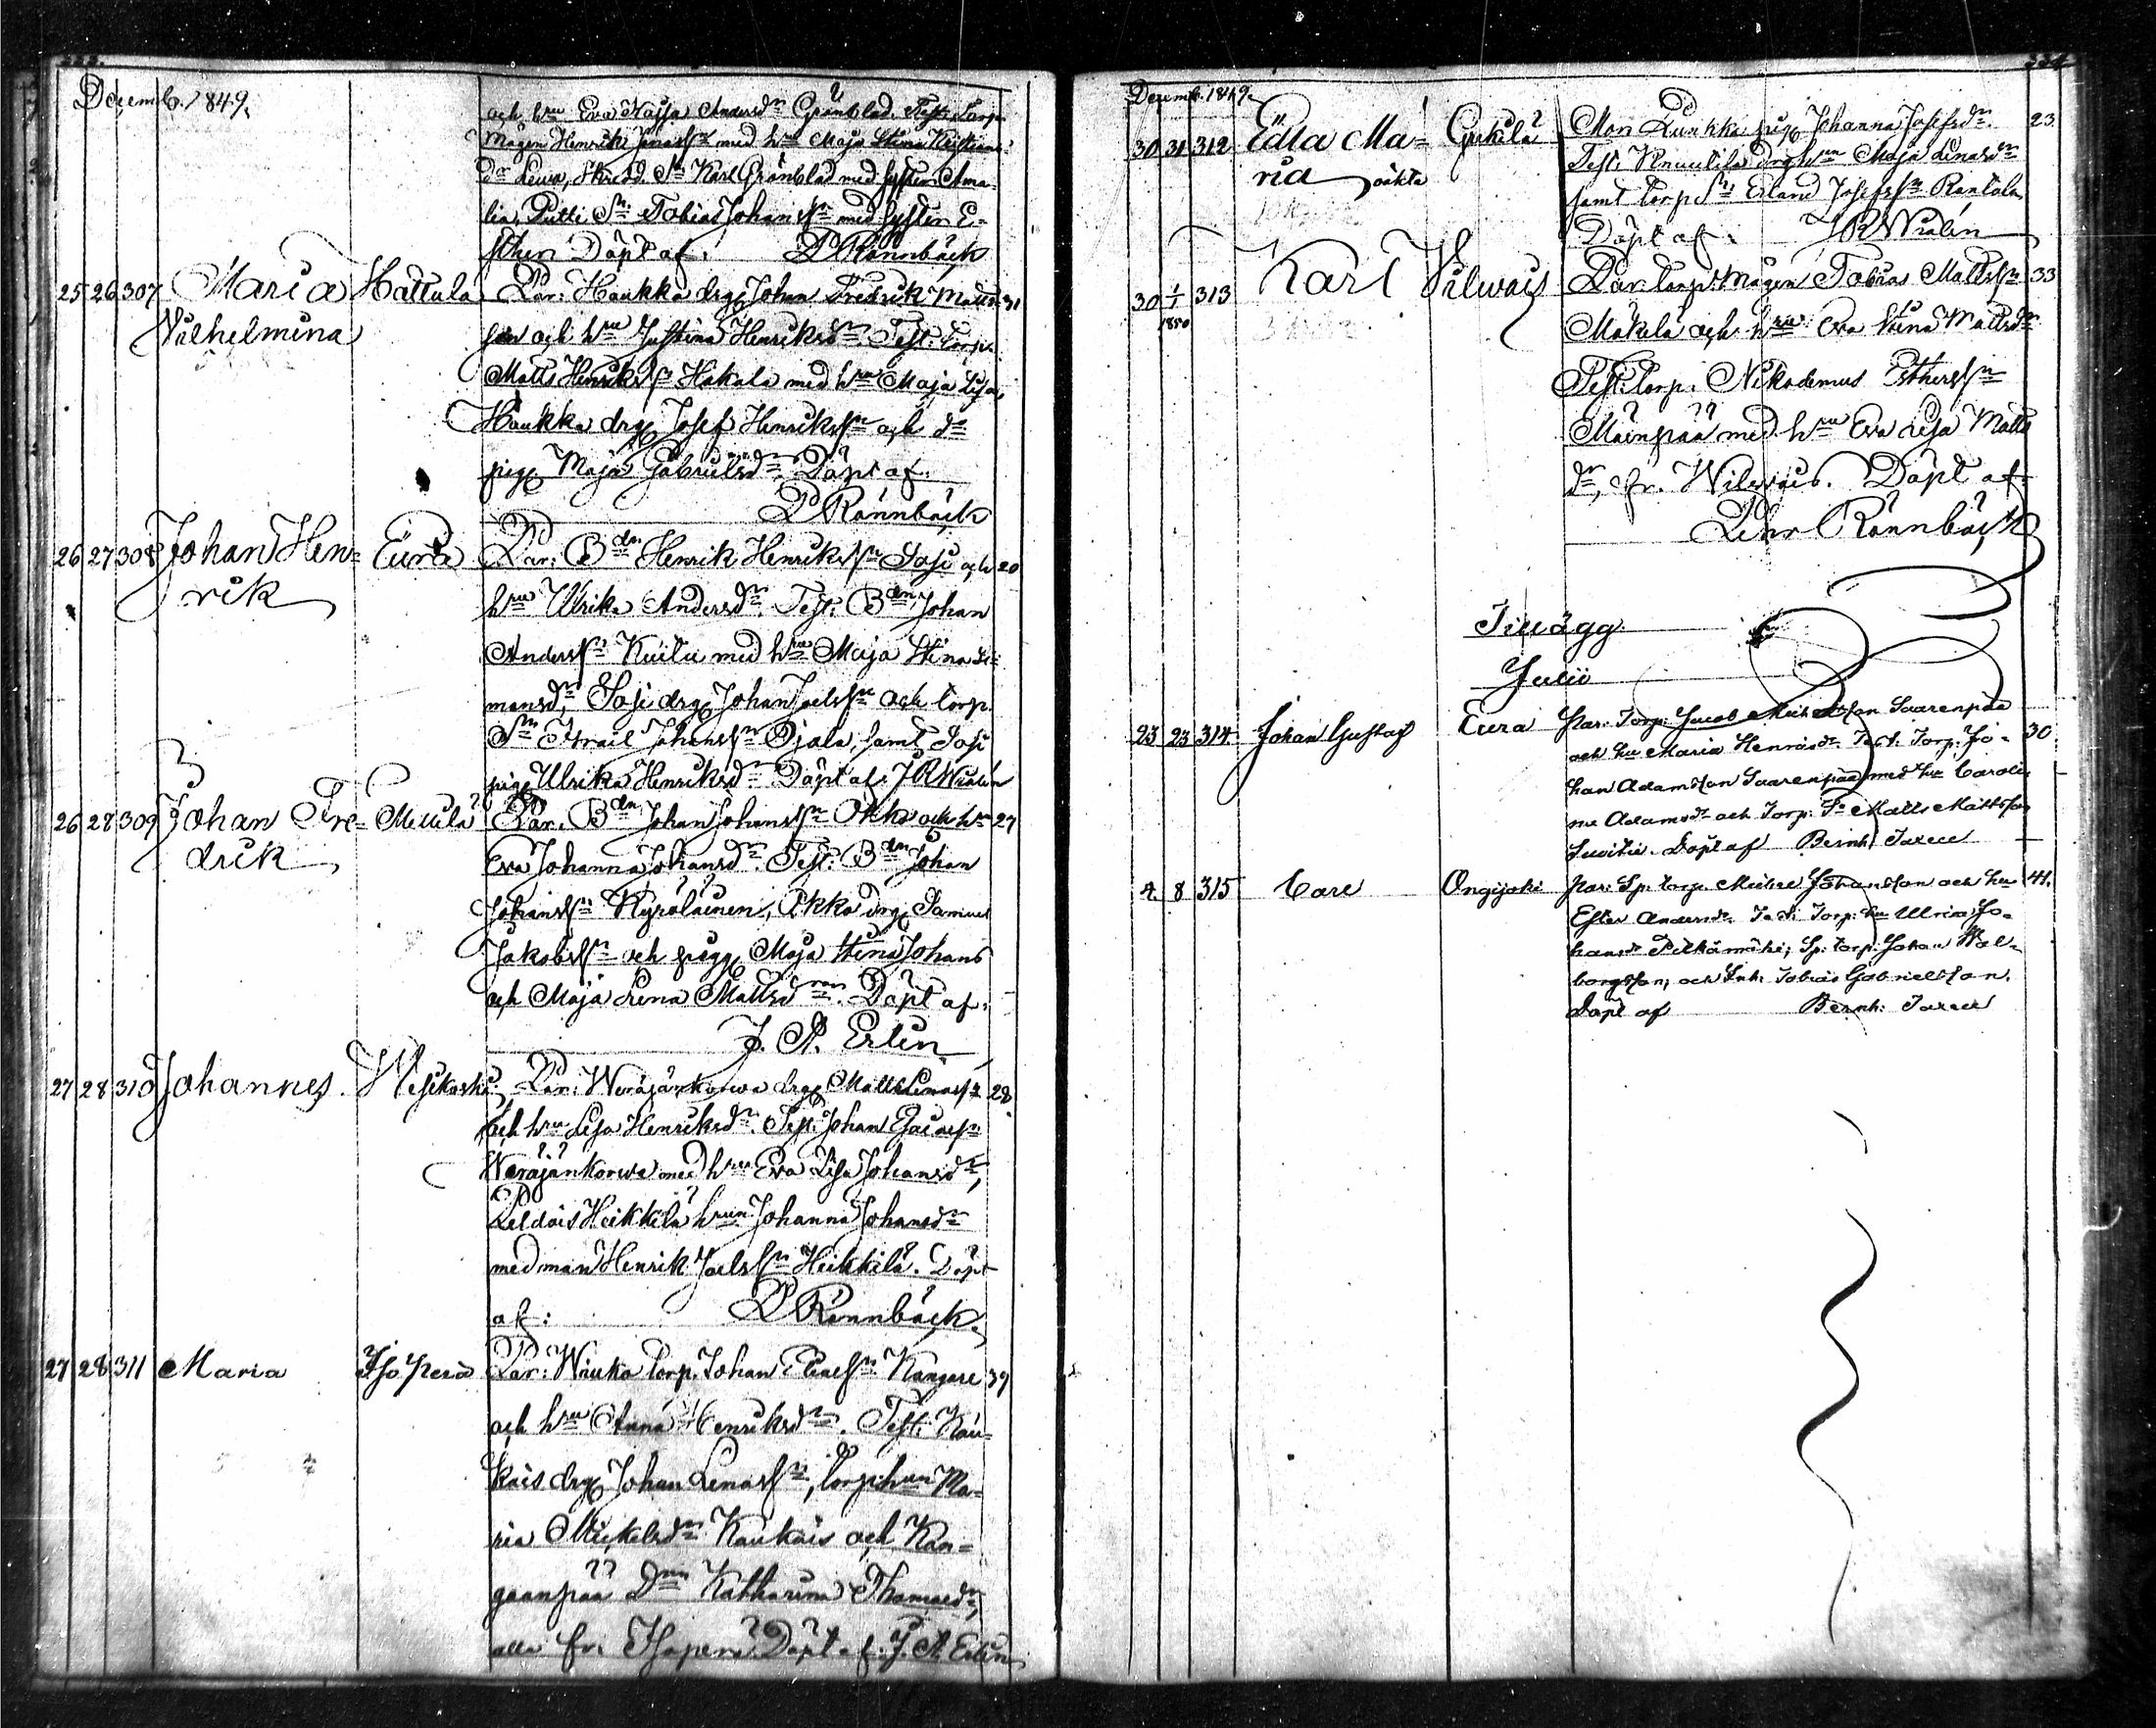 Decemb. 1849.
och hru Eva Kajsa Andersdr Grönblad. Test: Torp.
Mågen Henrik Jonasson med hru Maja Stina Kristians
dr Lewa, Karl Grönblad med systern Ama-
lia, Putti Sn Tobias Johansson med systern E-
sther. Döpt af. D Rönnbäck
25 26 307 Maria Hattula Par: Haukka drg Johan Fredrik Matts- 31
Wilhelmina son och hru Justina Henriksdr. Test: Torp.
Matts Henriksson Hakala med hru Maja Lisa,
Haukka drg Josef Henriksson och do
pig Maja Gabrielsdr. Döpt af:
D Rönnbäck
26 27 308 Johan Hen- Eura Par: Bdn Henrik Henriksson Sasi och 20
rik hru Ulrika Andersdr. Test: Bdn Johan
Andersson Kuitu med hru Maja Stina Si-
monsdr, Sasi drg Johan Joelsson och torp.
Sn Israel Johansson Ojala, samt Sasi
pig Ulrika Henriksdr Döpt af: J R Widlén
26 28 309 Johan Fre- Mettilä Par: Bdn Johan Johansson Okko och hru 27
drik Eva Johanna Johansdr. Test: Bdn Johan
Johansson Kyröläinen, Okko drg Samuel
Jakobsson och pigg Maja Stina Johans
och Maja Lena Mattsdrar. Döpt af:
J. A. Erlin
27 28 310 Johannes. Wesikoski Par: Weräjänkorwa drg Matts 28.
och hru Lisa Henriksdr. Test: Johan Esaiasson
Weräjänkorwa med hru Eva Lisa Johansdr,
Peldois Heikkilä hrun Johanna Johansdr
med man Henrik Joelsson Heikkilä. Döpt
af: D Rönnbäck.
27 28 311 Maria Isoperä Par: Torp. Johan Kangare 39
och hru Anna Henriksdr. Test: Kau-
kois drg Johan Lenasson, torp.hun Ma-
ria Mickelsdr Kaukois och Kan-
gaanpää Dnn Katharina Thomasdr,
alla fr. Isoperä. Döpt af: J. A. Erlin
Decemb. 1849.
30 31 312 Edla Ma- Mon Punkka pig Johanna Josefsdr. 23.
ria oäkta Test: Knuutila drg hrun Maja Lenasdr
samt torp Sn Erland Josefsson Rantala
Döpt af: J R Widlén
30 1/1 1850 313 Karl Wilwais Par: Torp: Mågen Tobias Mattsson 33
Mäkilä och hru Eva Stina Mattsdr
Test: Torp. Nikodemus Esthersson
Mäenpää med hru Eva Lisa Matts
dr, fr. Wilwais. Döpt af
Rönnbäck
Tillägg.
Julii
23 23 314 Johan Gustaf Eura Par: Torp: Jacob Saarenpää 30
och hu Maria Henricsdr. Test: Torp: Jo-
han Adamsson Saarenpää med hu Caroli-
na Adamsdr och Torp: Sn Matts Mattsson
Döpt af Bernh:
4. 8 315 Carl Ongijoki Par: Sp: torp. Johansson och hu 41.
Ester Andersdr. Test: Torp: hu Ulrica Jo-
hansdr Pitkämäki; Sp: torp: Johan Wal-
borgsson, och Inh. Tobias Gabrielsson.
Döpt af Bernh: